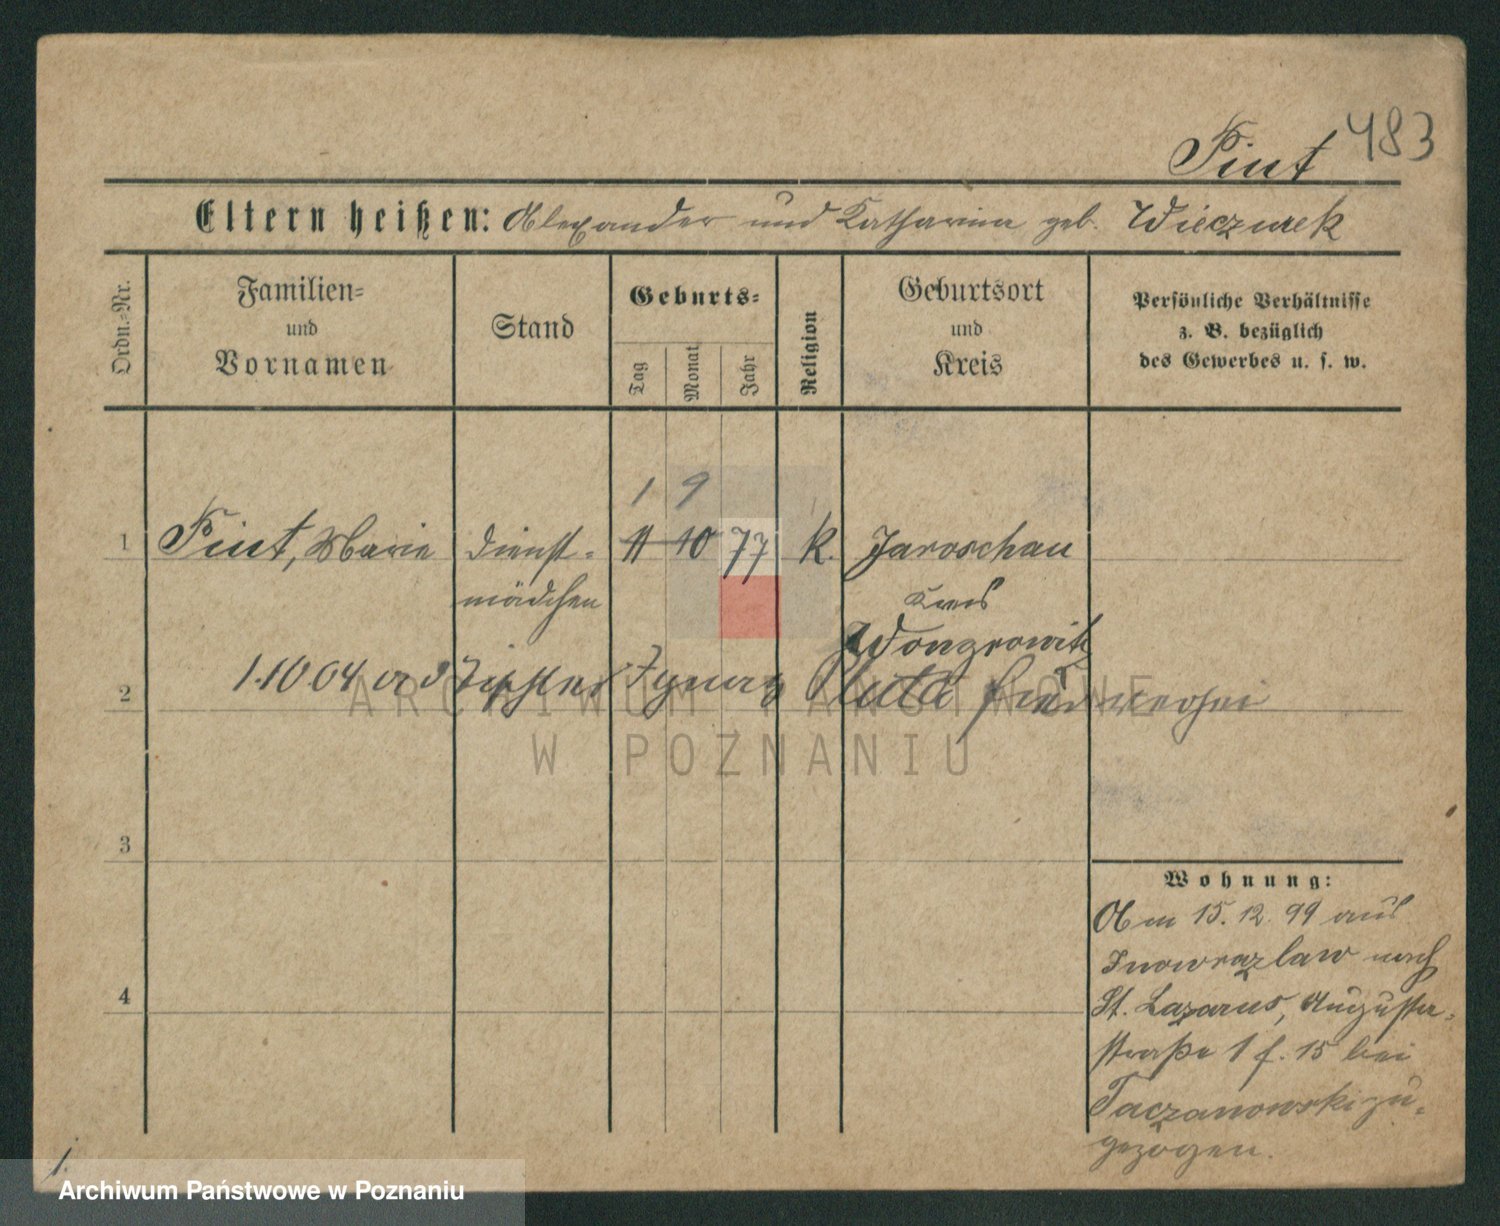 Pint 483
Eltern heißen: Alexander und Katharina geb. Wieczurek
Ordn.=Nr.
Familien=
und
Vornamen
Stand
Geburts=
Tag
Monat
Jahr
Religion
Geburtsort
und
Kreis
Persönliche Verhältnisse
z. B. bezüglich
des Gewerbes u. s. w.
1 9
1 Pint, Marie Dienst= 11 10 77 k. Jaroschau
mädchen Kreis
Wongrowitz
1.10 04 Tischler Ignaz Pluta
2
ARCHIWUM PAŃSTWOWE
W POZNANIU
3
Wohnung:
Am 15. 12. 99 aus
Inowrazlaw nach
4
St. Lazarus, Augusta=
straße 1 f. 15 bei
Taczanowski zu=
gezogen.
1.
Archiwum Państwowe w Poznaniu